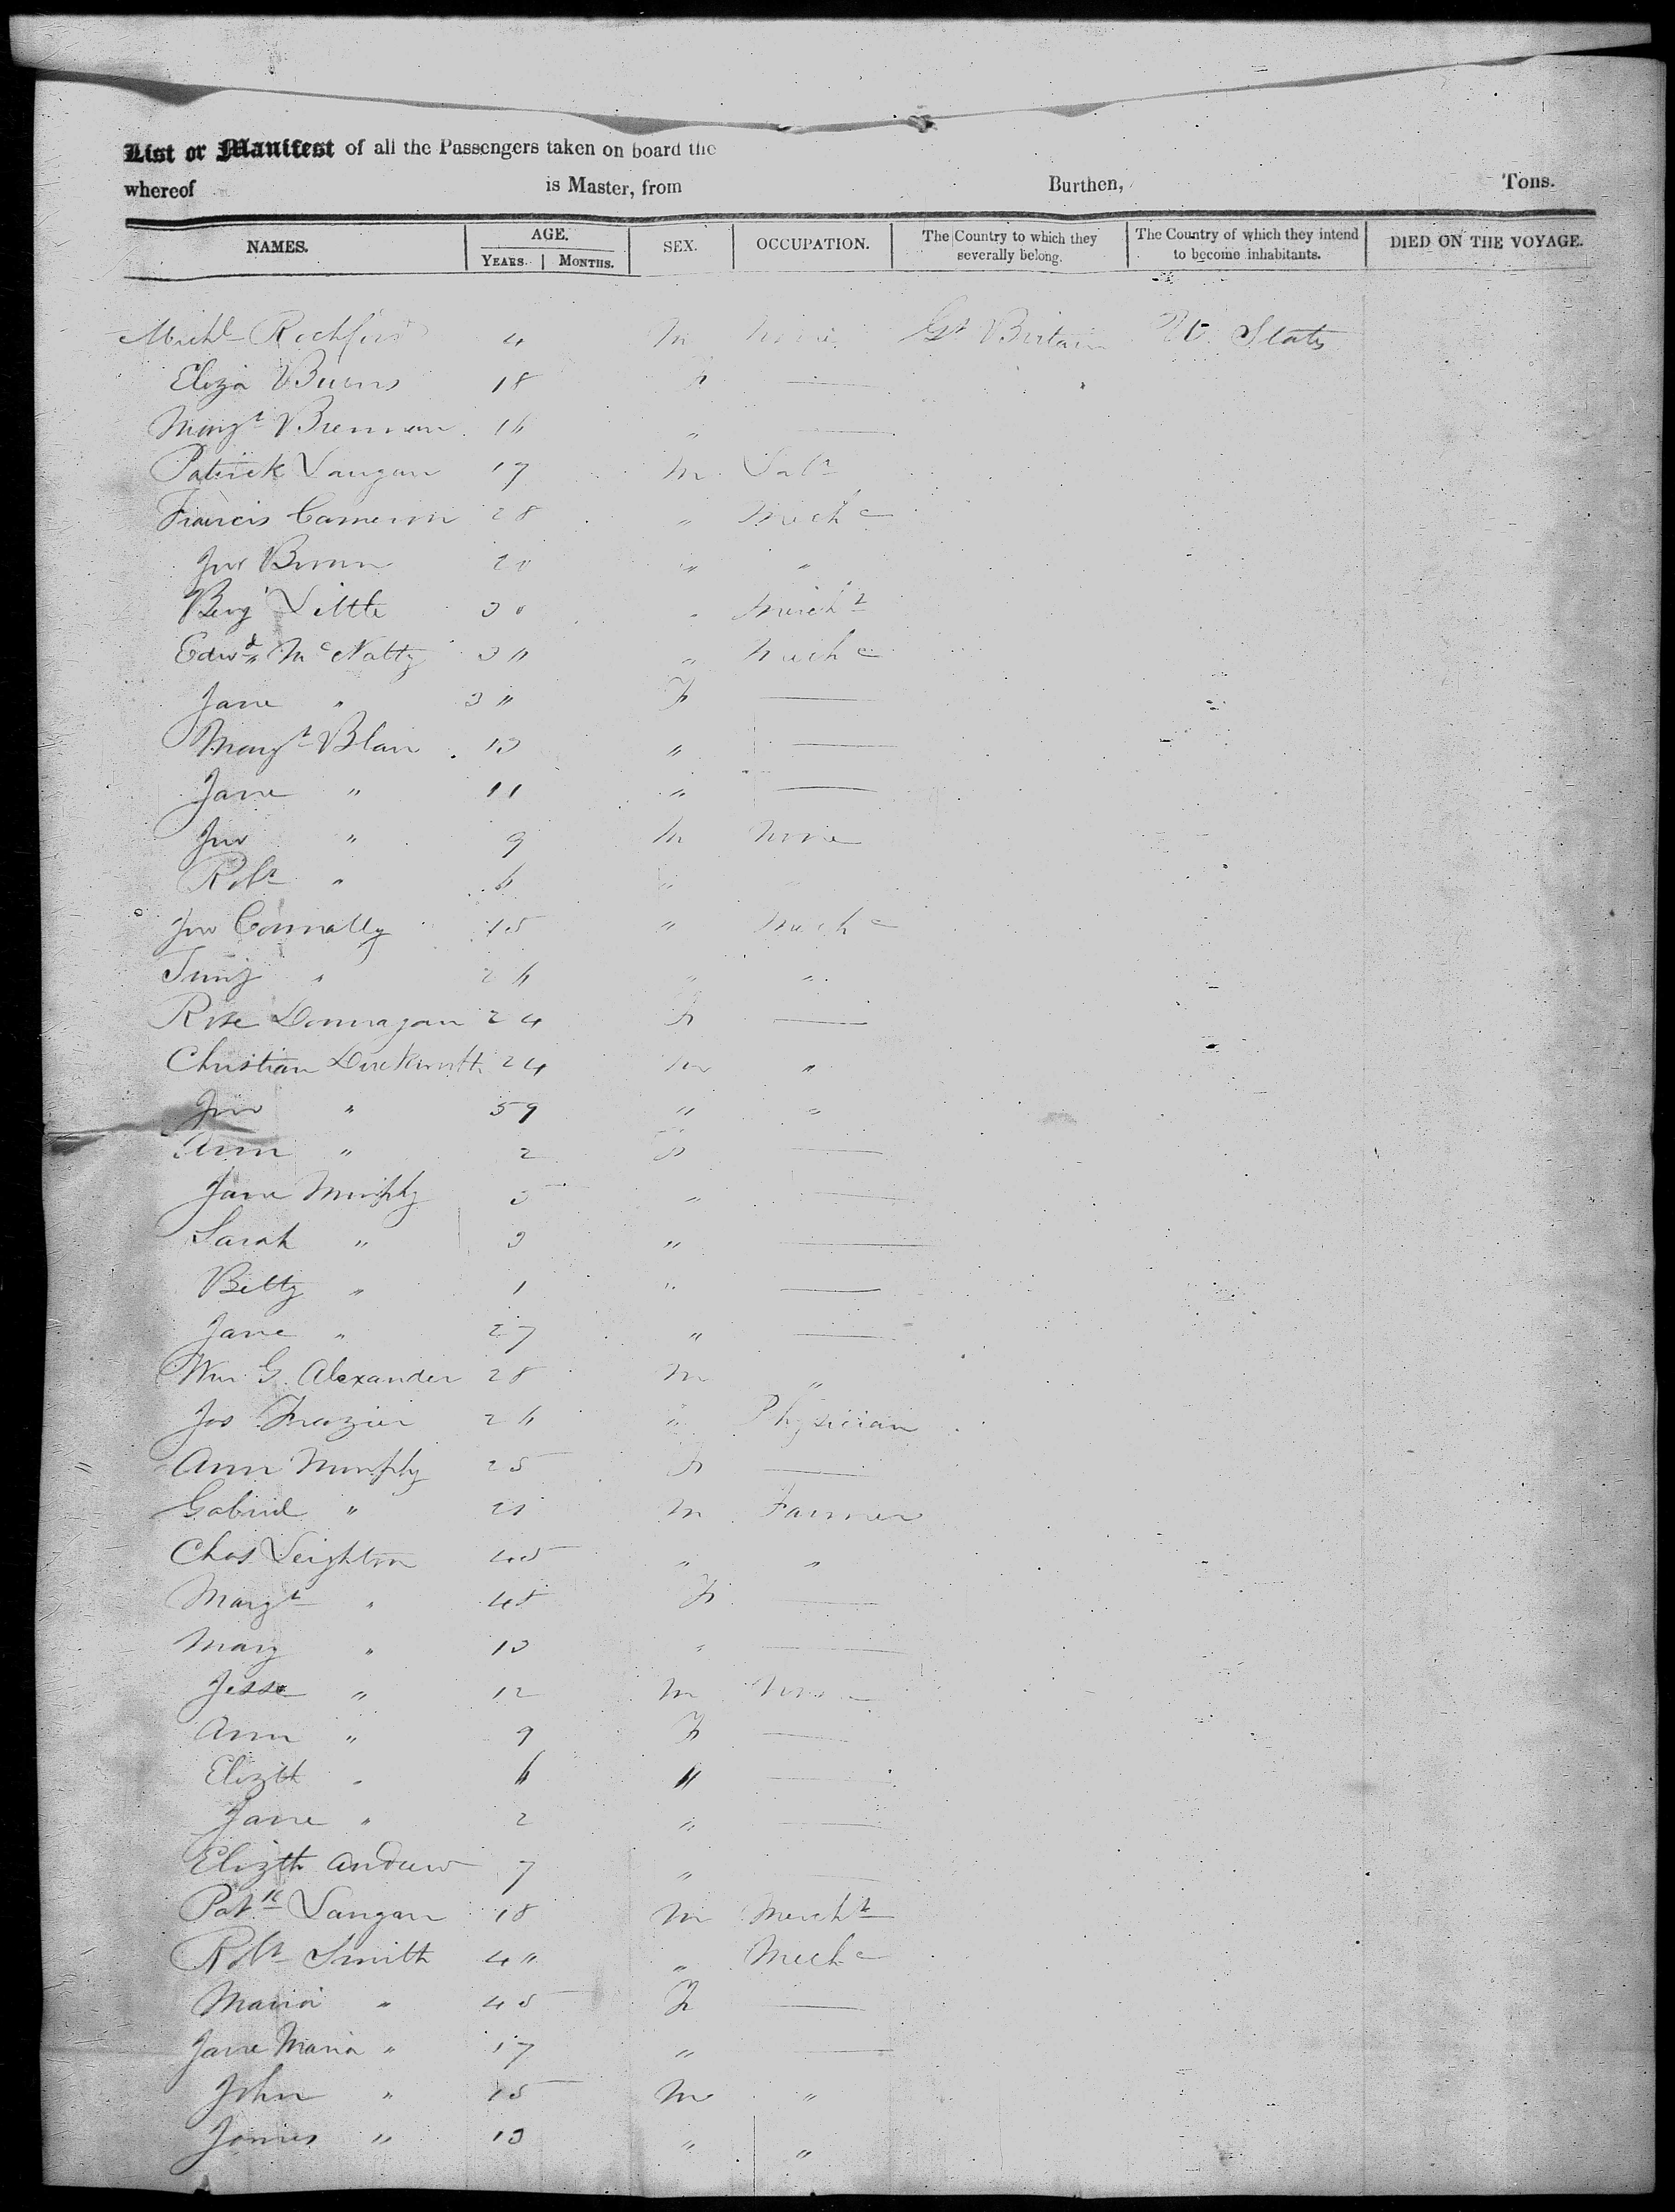 List or Manifest of all the Passengers taken on board the
whereof is Master, from Burthen, Tons.
NAMES. AGE. SEX. OCCUPATION. The Country to which they severally belong. The Country of which they intend to become inhabitants. DIED ON THE VOYAGE.
YEARS. MONTHS.
Michl Rochford 4 M None Gt Britain U. States
Eliza Burns 18 F —
Margt Brennan 16 " —
Patrick Langan 17 M Labr
Francis Cameron 28 " Mechc
Jno Brown 20 " "
Benj Little 30 " Mercht
Edwd McNatty 30 " Mechc
Jane " 30 F —
Margt Blair 13 " —
Jane " 11 " —
Jno " 9 M None
Robt " 6 "
Jno Connally 15 " Mechc
" 26 " "
Rose Donnagan 24 F —
Christian Duckworth 24 M "
Jno " 59 " "
Ann " 2 F —
Jane Murphy 5 " —
Sarah " 3 " —
Betty " 1 " —
Jane " 27 " —
Wm G. Alexander 28 M "
Jos Frazier 26 " Physician
Ann Murphy 25 F —
Gabriel " 21 M Farmer
Chas Leighton 45 " "
Margt " 45 F —
Mary " 13 " —
Jesse " 12 M None
Ann " 9 F —
Elizth " 6 " —
Jane " 2 " —
Elizth Andrew 7 " —
Patk Langan 18 M Mercht
Robt Smith 40 " Mechc
Maria " 45 F —
Jane Maria " 17 " —
John " 15 M "
James " 13 " "